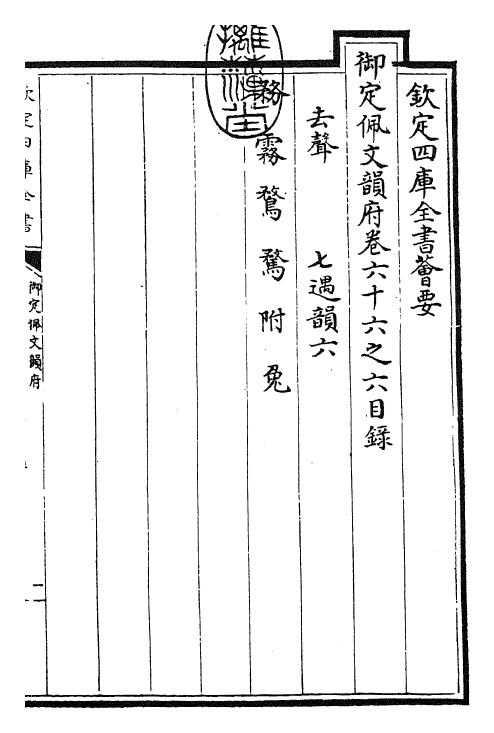 欽定四庫全書薈要
御定佩文韻府卷六十六之六目錄
去聲 七遇韻六
務 霧 鶩 騖 附 兔
欽定四庫全書
御定佩文韻府